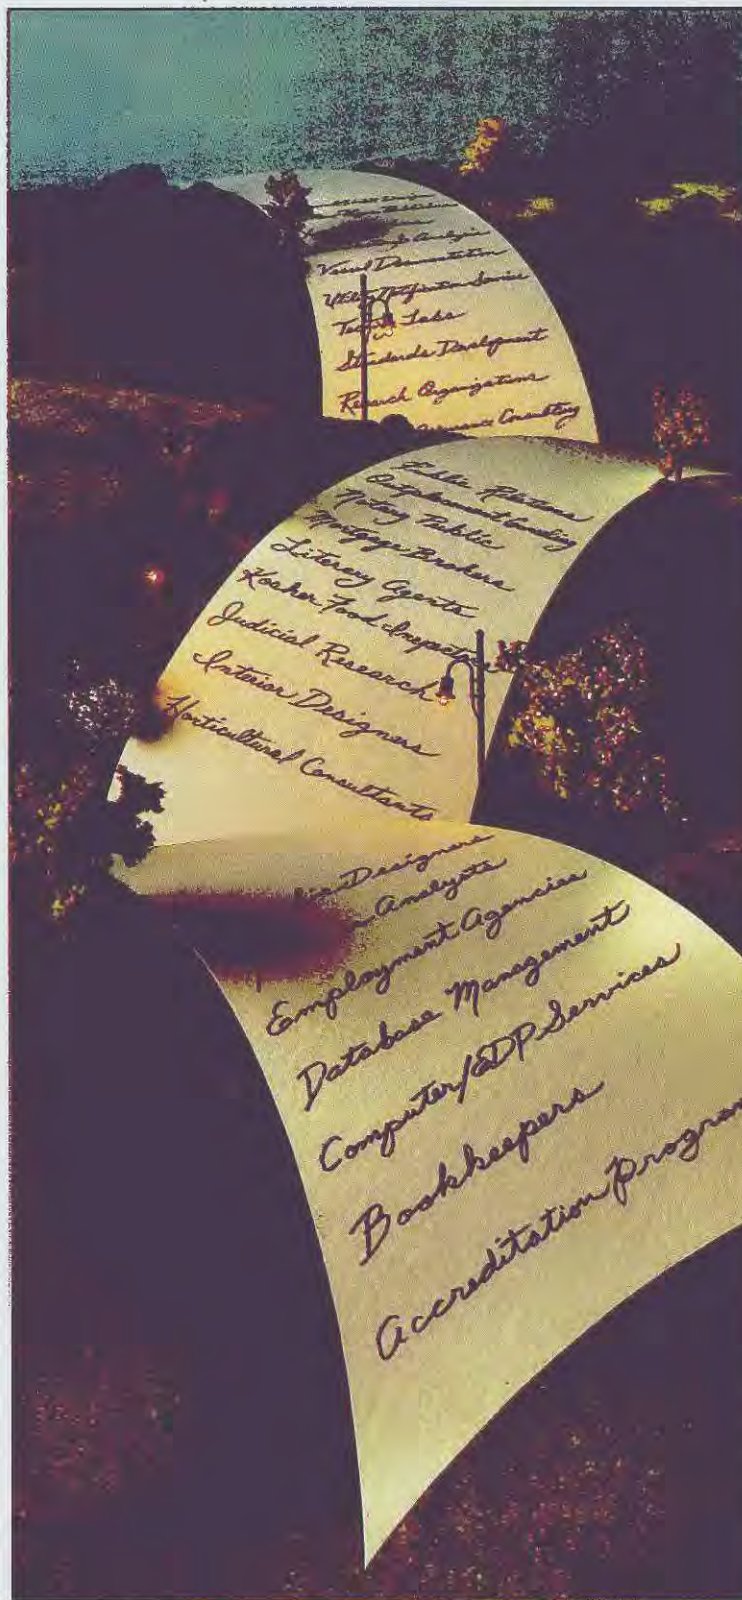 Analysis
Visual Documentation
Utility Notification Service
Labs
Standards Development
Research Organizations
Consulting
Public Relations
Outplacement
Notary Public
Mortgage Brokers
Literary Agents
Kosher Food
Judicial Research
Interior Designers
Horticultural Consultants
Designers
Analysts
Employment Agencies
Database Management
Computer/EDP Services
Bookkeepers
Accreditation Program